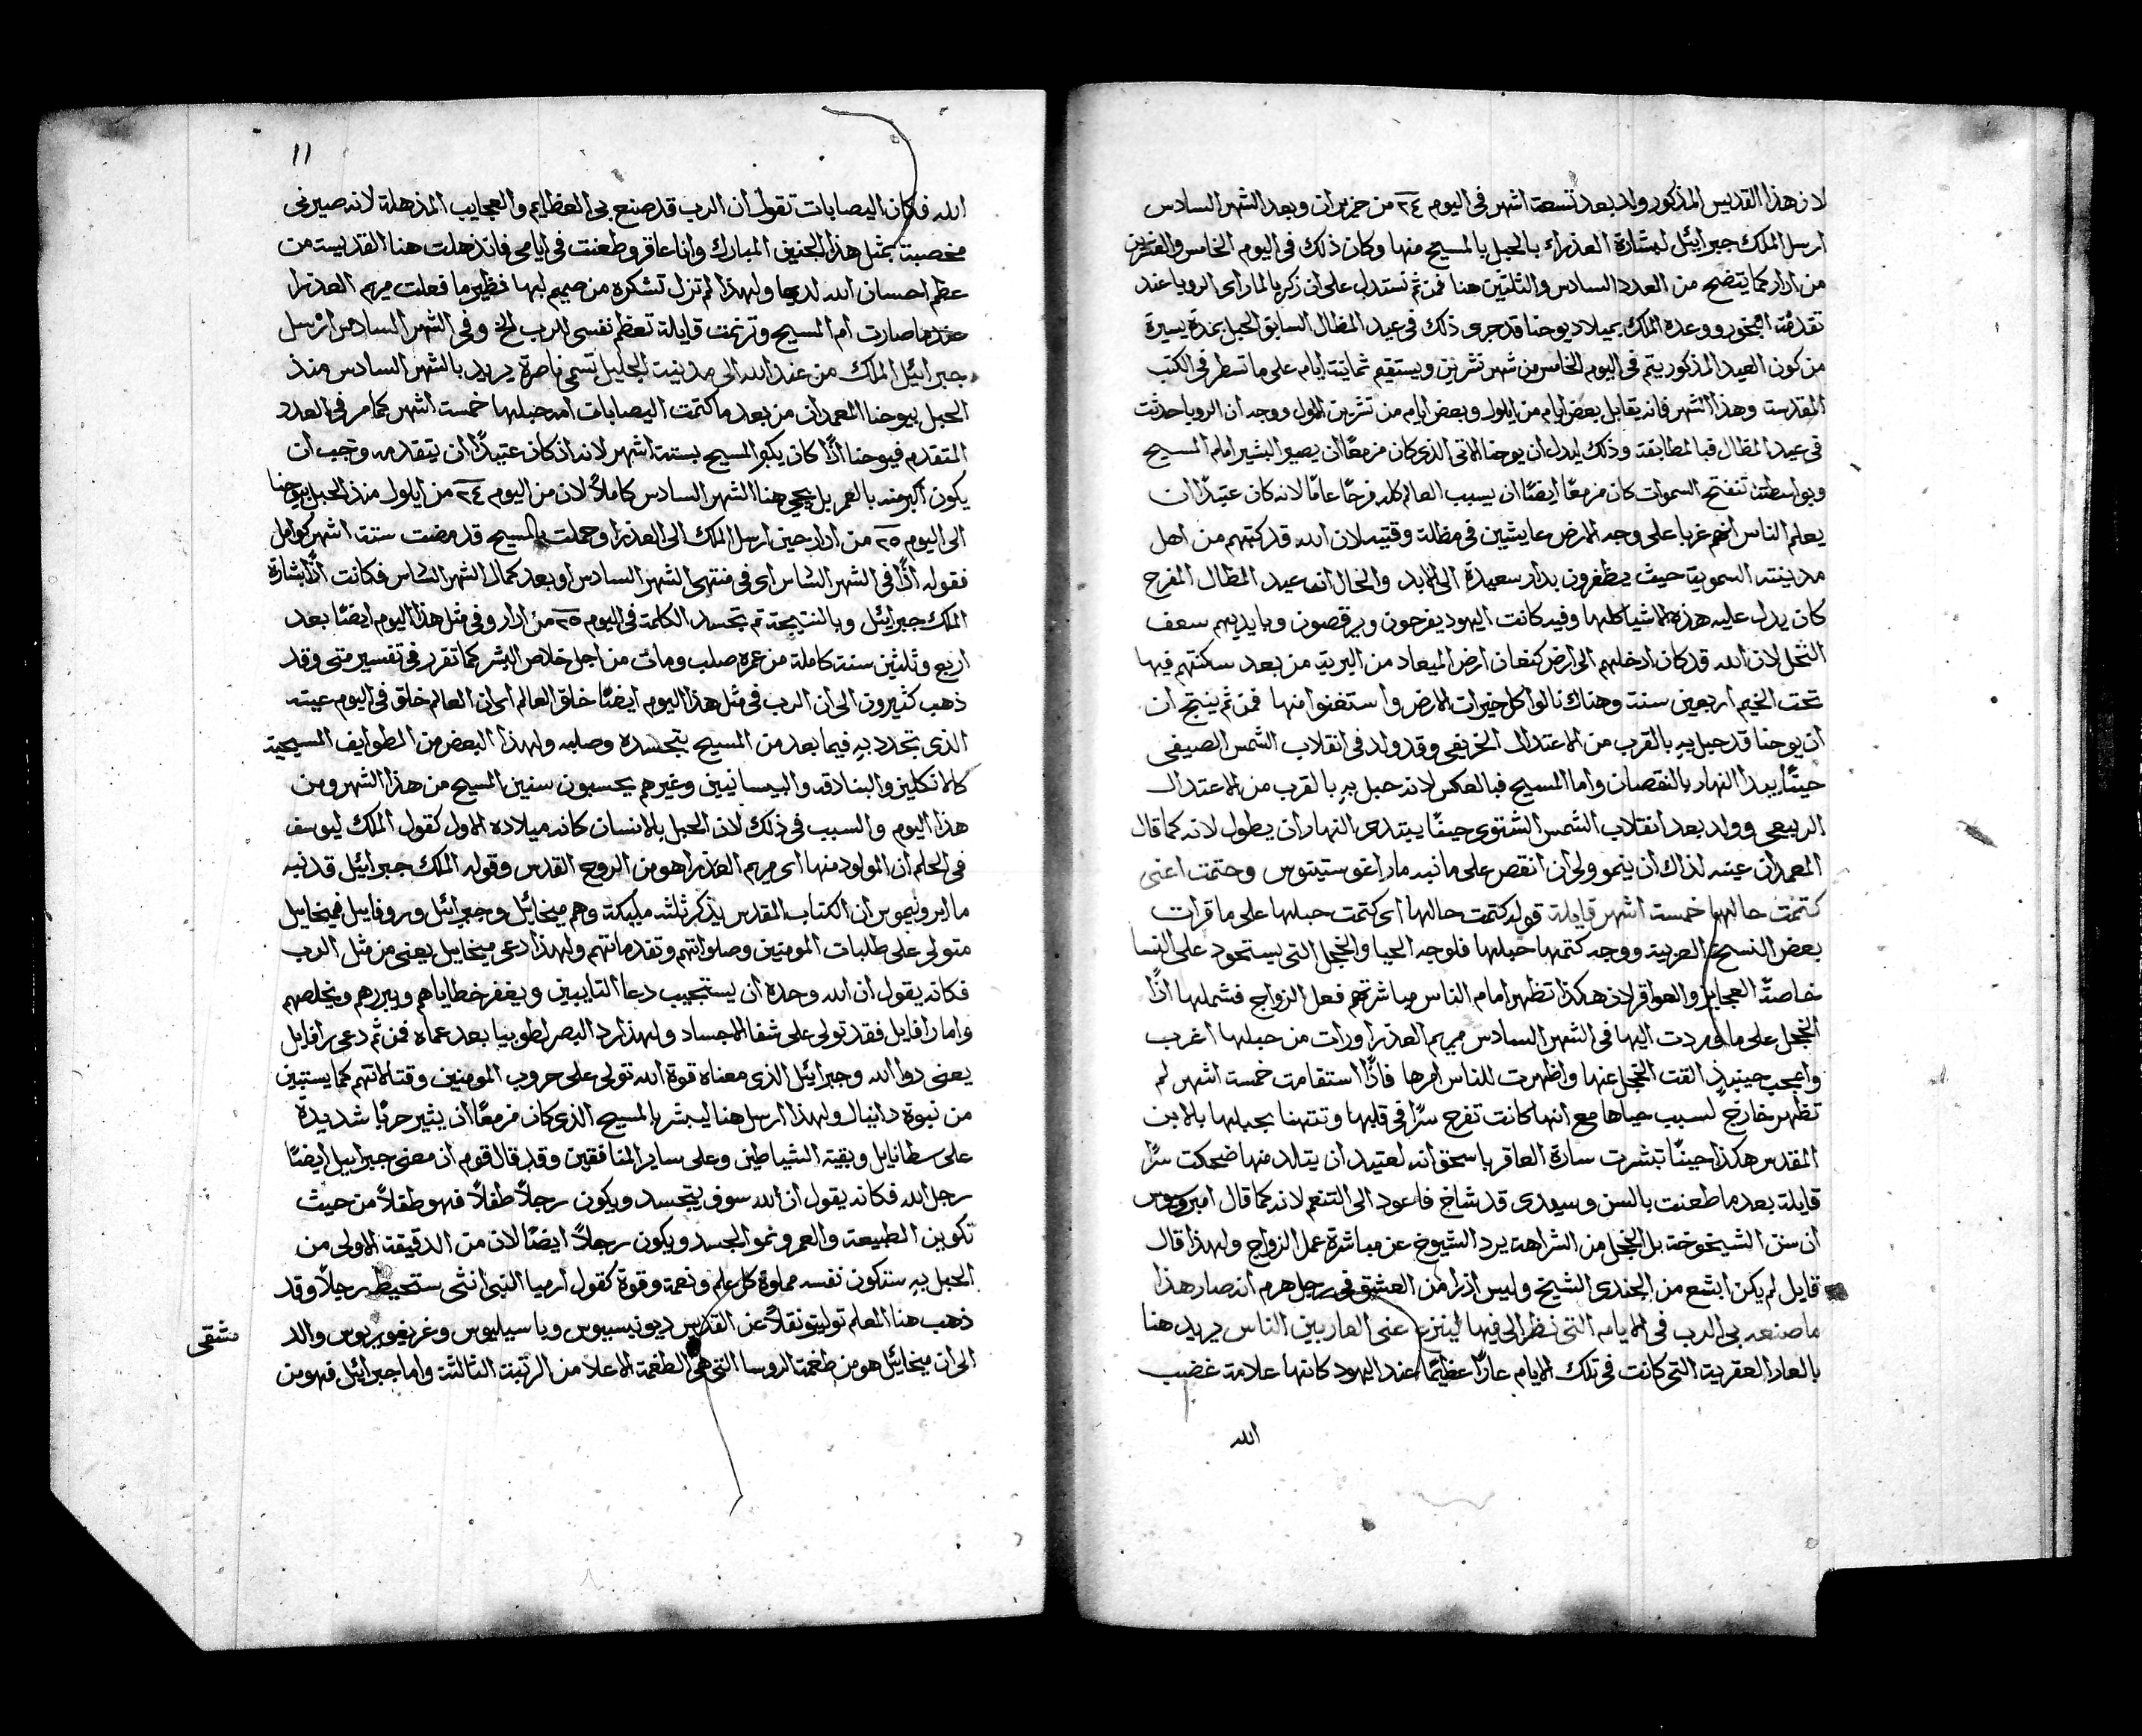 لان هذا القديس المذكور ولد بعد تسعة اشهر في اليوم ٢٤ من حزيران وبعد الشهر السادس
ارسل الملاك جبرائيل لبشارة العذراء بالحبل بالمسيح منها وكان ذلك في اليوم الخامس والعشرين
من ادار كما يتضح من العدد السادس والثلثين هنا فمن ثم نستدل على ان زكريا لما راى الرويا عند
تقدمة البخور ووعده الملاك بميلاد يوحنا قد جرى ذلك في عيد المظال السابق الحبل بمدة يسيرة
من كون العيد المذكور يتم في اليوم الخامس من شهر تشرين ويستقيم ثمانية ايام على ما تسطر في الكتب
المقدسة وهذا الشهر فانه يقابل بعض ايام من ايلول وبعض ايام من تشرين الاول ووجه ان الرويا حدثت
في عيد المظال فبالمطابقة وذلك ليدل ان يوحنا الاتي الذي كان مزمعًا ان يصير البشير امام المسيح
وبواسطته تنفتح السموات كان مزمعًا ايضًا ان يسبب العالم كله فرحًا عامًا لانه كان عتيدًا ان
يعلم الناس انهم غربا على وجه الارض عايشين في مظالة وقتيه لان الله قد كتبهم من اهل
مدينته السموية حيث يظفرون بدار سعيدة الى الابد والحال ان عيد المظال المفرح
كان يدل عليه هذه الاشيا كلها وفيه كانت اليهود يفرحون ويرقصون وبايديهم سعف
النخل لان الله قد كان ادخلهم الى ارض كنعان ارض الميعاد من البرية من بعد سكنتهم فيها
تحت الخيم اربعين سنة وهناك نالوا كل خيرات الارض واستغنوا منها فمن ثم ينتج ان
ان يوحنا قد حبل به بالقرب من الاعتدال الخريفي وقد ولد في انقلاب الشمس الصيفي
حينًا يبدا النهار بالنقصان واما المسيح فبالعكس لانه حبل به بالقرب من الاعتدال
الربيعي وولد بعد انقلاب الشمس الشتوي حينًا يبتدى النهار ان يطول لانه كما قال
المعمدان عينه لذاك ان ينمو ولي ان انقص على ما نبه مار اغوستينوس وحتمت اعني
كتمت حالها خمسة اشهر قايلة قوله كتمت حالها اي كتمت حبلها على ما قرات
بعض النسخ العربية ووجه كتمها حبلها فلوجه الحيا والخجل التي يستحوذ على النسا
خاصةً العجايز والعواقر لان هكذا تظهر امام الناس مباشرتهم فعل الزواج فشملها اذًا
الخجل على ما وردت اليها في الشهر السادس مريم العذرا ورات من حبلها اغرب
واعجب حينيذٍ القت الخجل عنها واظهرت للناس امرها فاذًا استقامت خمسة اشهر لم
تظهر خارج لسبب حياها مع انها كانت تفرح سرًا في قلبها وتتهنا بحبلها بالابن
المقدس هكذا حينًا تبشرت سارة العاقر باسحق انه لعتيد ان يتالد منها ضحكت سرًا
قايلة بعد ما طعنت بالسن وسيدي قد شاخ فاعود الى التنعم لانه كما قال امبروسيوس
ان سنن الشيخوخة بل الخجل من الشراهة يرد الشيوخ عن مباشرة عمل الزواج ولهذا قال
قايل لم يكن ابشع من الجندي الشيخ وليس اذرا من العشق في رجل هرم انه صار هذا
ما صنعه بي الرب في الايام التي نظر الى فيها لينزع عني العار بين الناس يريد هنا
بالعار العقرية التي كانت في تلك الايام عارًا عظيمًا عند اليهود كانها علامة غضب
الله
١١
الله فكان اليصابات تقول ان الرب قد صنع بي العظايم والعجايب المذهلة لانه صيرني
مخصبة بمثل هذا الجنين المبارك وانا عاقر وطعنت في ايامي فانذهلت هنا القديسة من
عظم احسان الله لديها ولهذا لم تزل تشكره من صميم لبها نظير ما فعلت مريم العذرا
عندما صارت ام المسيح وترنمت قايلة تعظم نفسي للرب الخ وفي الشهر السادس ارسل
جبرائيل الملاك من عند الله الى مدينة الجليل تسمى ناصرة يريد بالشهر السادس منذ
الحبل بيوحنا المعمدان من بعد ما كتمت اليصابات امه حبلها خمسة اشهر كما مر في العدد
المتقدم فيوحنا اذًا كان يكبر المسيح بستة اشهر لانه اذ كان عتيدًا ان يتقدمه وجب ان
يكون اكبر منه بالعمر بل يجي هنا الشهر السادس كاملاً لان من اليوم ٢٤ من ايلول منذ الحبل بيوحنا
الى اليوم ٢٥ من ادار حين ارسل الملاك الى العذرا وحملت بالمسيح قد مضت ستة اشهر كوامل
فقوله اذًا في الشهر السادس اي في منتهى الشهر السادس او بعد كمال الشهر السادس فكانت اذًا بشارة
الملاك جبرائيل وبالنتيجة تم تجسد الكلمة في اليوم ٢٥ من ادار وفي مثل هذا اليوم ايضًا بعد
اربع وثلثين سنة كاملة من عمره صلب ومات من اجل خلاص البشر كما تقرر في تفسير متى وقد
ذهب كثيرون الى ان الرب في مثل هذا اليوم ايضًا خلق العالم اي ان العالم خلق في اليوم عينه
الذي تجدد به فيما بعد من المسيح بتجسده وصلبه ولهذا البعض من الطوايف المسيحية
كالانكليز والبنادقه والبيسانيين وغيرهم يحسبون سنين المسيح من هذا الشهر ومن
هذا اليوم والسبب في ذلك لان الحبل بالانسان كانه ميلاده الاول كقول الملاك ليوسف
في الحلم ان المولود منها اي مريم العذرا هو من الروح القدس وقوله الملاك جبرائيل قد نبه
مار ايرونيموس ان الكتاب المقدس يذكر ثلثه مليكة وهم ميخائيل وجبرائيل وروفاييل فميخاييل
متولى على طلبات المومنين وصلواتهم وتقدماتهم ولهذا دعي ميخاييل يعني من مثل الرب
فكانه يقول ان الله وحده ان يستجيب دعا التايبين ويغفر خطاياهم ويبررهم ويخلصهم
واما رافايل فقد تولى على شفا الاجساد ولهذا رد البصر لطوبيا بعد عماه فمن ثم دعي رافايل
يعني دوا الله وجبرائيل الذي معناه قوة الله تولى على حروب المومنين وقتالاتهم كما يستبين
من نبوة دانيال ولهذا ارسل هنا ليبشر بالمسيح الذي كان مزمعًا ان يثير حربًا شديدة
على سطانايل وبقية الشياطين وعلى ساير المنافقين وقد قال قوم ان معنى جبراييل ايضًا
رجل الله فكانه يقول ان الله سوف يتجسد ويكون رجلاً طفلاً فهو طفلاً من حيث
تكوين الطبيعة والعمر ونمو الجسد ويكون رجلاً ايضًا لان من الدقيقة الاولى من
الحبل به ستكون نفسه مملوة كل علم ونعمة وقوة كقول ارميا النبي انثى ستحيط برجلاً وقد
ذهب هنا المعلم توليتو نقلاً عن القديس ديونيسيوس وباسيليوس وغريغوريوس والد
مشقي
الى ان ميخائيل هو من طغمة الروسا التي هي الطغمة الاعلا من الرتبة الثالثة واما جبرائيل فهو من